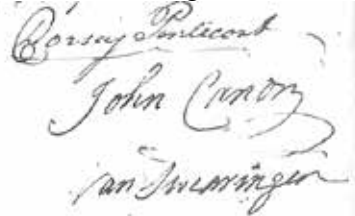 Dorsey Pentecost
John Canon
Van Swearingen